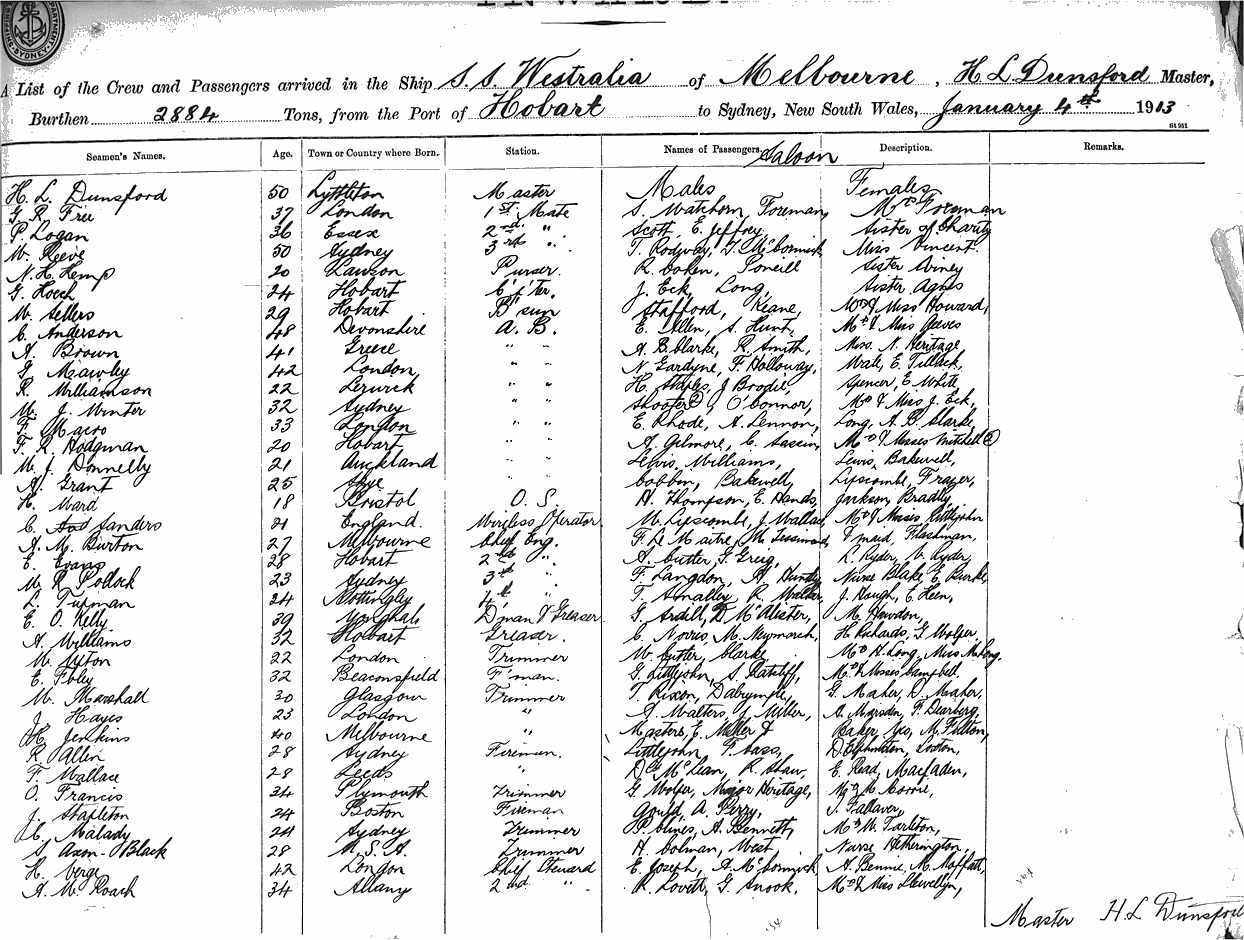 List of the Crew and Passengers arrived in the Ship S.S. Westralia of Melbourne, H. L. Dunsford Master,
Burthen 2884 Tons, from the Port of Hobart to Sydney, New South Wales, January 4th 1913
Seamen's Names. Age. Town or Country where Born. Station. Names of Passengers. Saloon Description. Remarks.
H. L. Dunsford 50 Lyttleton Master Males Females
G. R. Free 37 London 1st Mate S. Watchorn, Foreman, Mrs Foreman
P. Logan 36 Essex 2nd " Scott, E. Jeffrey, Sister of Charity
W. Reeve 50 Sydney 3rd " T. Rodway, McCormick Miss Vincent
N. H. Kemp 20 Lawson Purser. R. Cohen, Powell Sister
G. Hoech 24 Hobart C'p'ter. J. Eck, Long, Sister Agnes
W. Sellers 29 Hobart B'sun Stafford, Keane, Mrs & Miss Howard,
C. Anderson 48 Devonshire A. B. E. Allen, S. Hunt, Mrs & Miss Reeves
A. Brown 41 Greece " " A. B. Clarke, R. Smith, Miss. N. Heritage,
G. Mawley 42 London " " N Gardyne, F. Holloway, Wate, E. Tillack,
R. Williamson 22 Lerwick " " H. Staples, J Brodie, Spencer, E White,
W. J. Winter 32 Sydney " " Shooter (2), J O'Connor, Mrs & Miss J. Eck,
F. Macro 33 London " " E. Rhode, A. Lennon, Long, A. B. Clarke,
F. R. Hodgman 20 Hobart " " A. Gilmore, C. Mrs & Misses Mitchell (2)
W. J. Donnelly 21 Auckland " " Lewis, Williams, Lewis, Bakewell,
A. Grant 25 Skye " " Bakewell, Lipscombe, Frazer,
H. Ward 18 Bristol O. S. H. Thompson, E. Hands, Jackson, Bradly,
C. Sanders 21 England. Wireless Operator. W. Lipscombe, J. Wallace, Mrs & Misses Littlejohn
A. M. Burton 27 Melbourne Chief Eng. F. Le Maitre, M. & maid, Flashman,
E. Evans 28 Hobart 2nd " A. Cutter, G. Greig, R. Ryder, V. Ryder,
W. R. Pollock 23 Sydney 3rd " F. Langdon, A. Nurse Blake, E. Burke,
L. Tupman 24 4th " T. R. Walker J. Haugh, E. Keen,
E. O. Kelly 39 Youghal D'man & Greaser G. Ardill, D. McAlister, M. Hawdon,
A. Williams 32 Hobart Greaser. C. Norris, M. H. Richards, G. Wolfer,
W. 22 London Trimmer W. Cutter, Clarke, Mrs H. Long, Miss M. Long.
E. Foley 32 Beaconsfield F'man. G. Littlejohn, S. Ratcliff, Mrs & Misses Campbell.
W. Marshall 30 Glasgow Trimmer T. Rixon, Dalrymple, G. Maher, D. Maher,
J. Hayes 23 London " A. Walters, J. Miller, A. Marsden, F. Dearberg,
H. Jenkins 40 Melbourne " Masters, E. Miller & Baker, M. Fulton,
R. Allen 28 Sydney Fireman. Littlejohn, T. Sass, D. Elphinston,
F. Wallace 28 Leeds " Dr McLean, R. Shaw, E. Read, Macfaden,
O. Francis 34 Plymouth Trimmer G. Wolfer, Major Heritage, Mrs Corrie,
J. Stapleton 24 Boston Fireman Gould, A. Perry,
C. Malady 24 Sydney Trimmer P. A. Bennett, Mrs W. Tarleton,
S. Axon-Black 28 U. S. A. Trimmer H. Colman, West, Nurse Hetherington,
H. Verge 42 London Chief Steward E. Joseph, A. McCormick, A. Bennie, M. Moffath,
A. W. Roach 34 Albany 2nd " R. Lovett, G. Snook, Mrs & Miss Llewellyn,
Master H. L. Dunsford